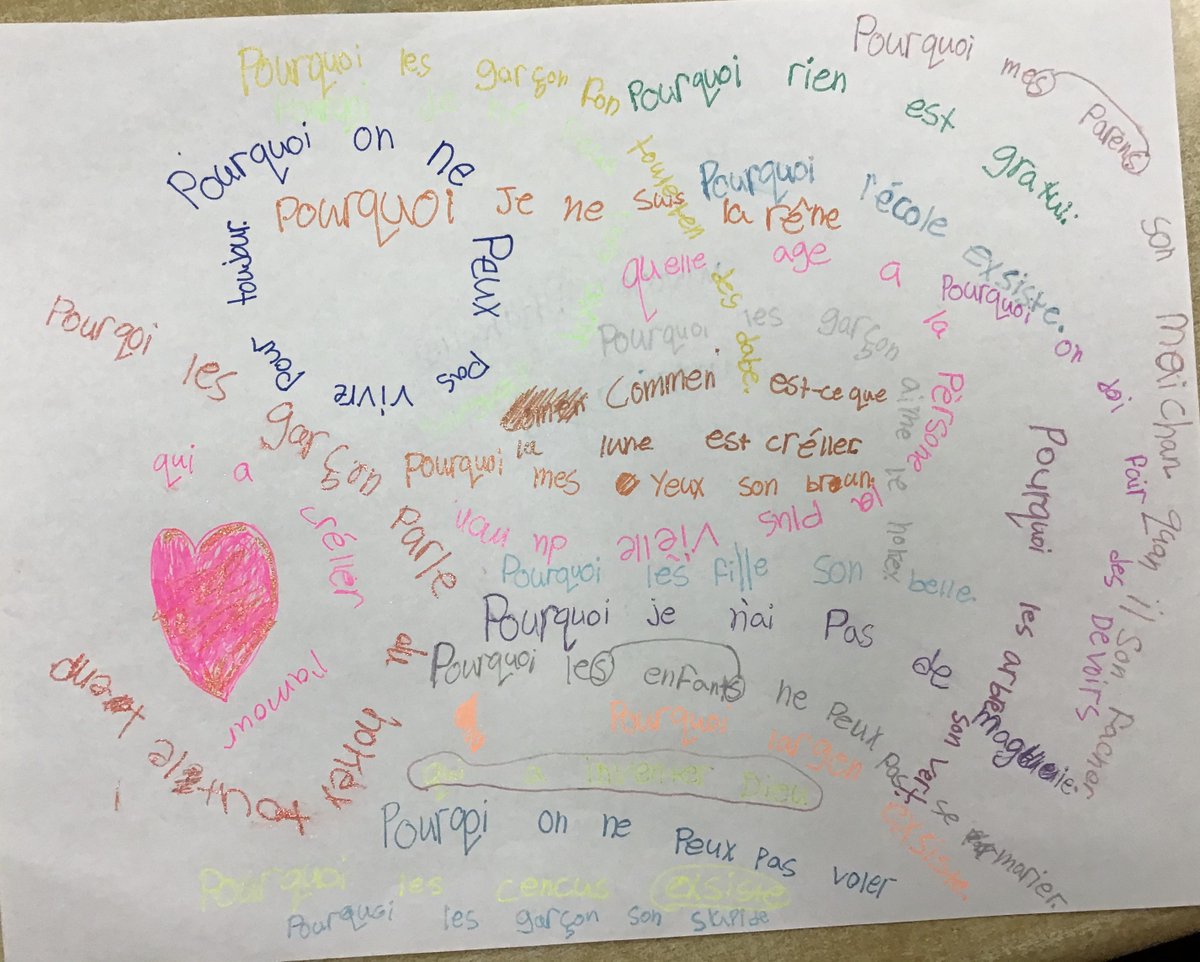 Pourquoi les garçon fon toulten des dabe.
Pourquoi rien est gratui.
Pourquoi mes Parens son Méichan Quan il son Facher
Pourquoi on ne Peux pas vivre pour toujour.
Pourquoi Je ne suis la rêne
Pourquoi l'école exsiste.
quelle age a la Persone la Plus Vielle du mon
Pourquoi on doi Fair des DEVoirS
Pourquoi les garçon aime le hokey
Commen est-ce que
la lune est créller
Pourqoi les garçon Parle du hokey toutele temp
Pourquoi mes Yeux son broun.
qui a créller l'amour
Pourquoi les arbe son vert
Pourquoi les fille son belle.
Pourquoi je n'ai Pas de
Pourquoi les enfants ne Peux pas se marier.
Pourquoi exsiste.
a inventer Dieu
Pourqoi on ne Peux pas voler
Pourquoi les cencus exsiste
Pourquoi les garçon son stupide